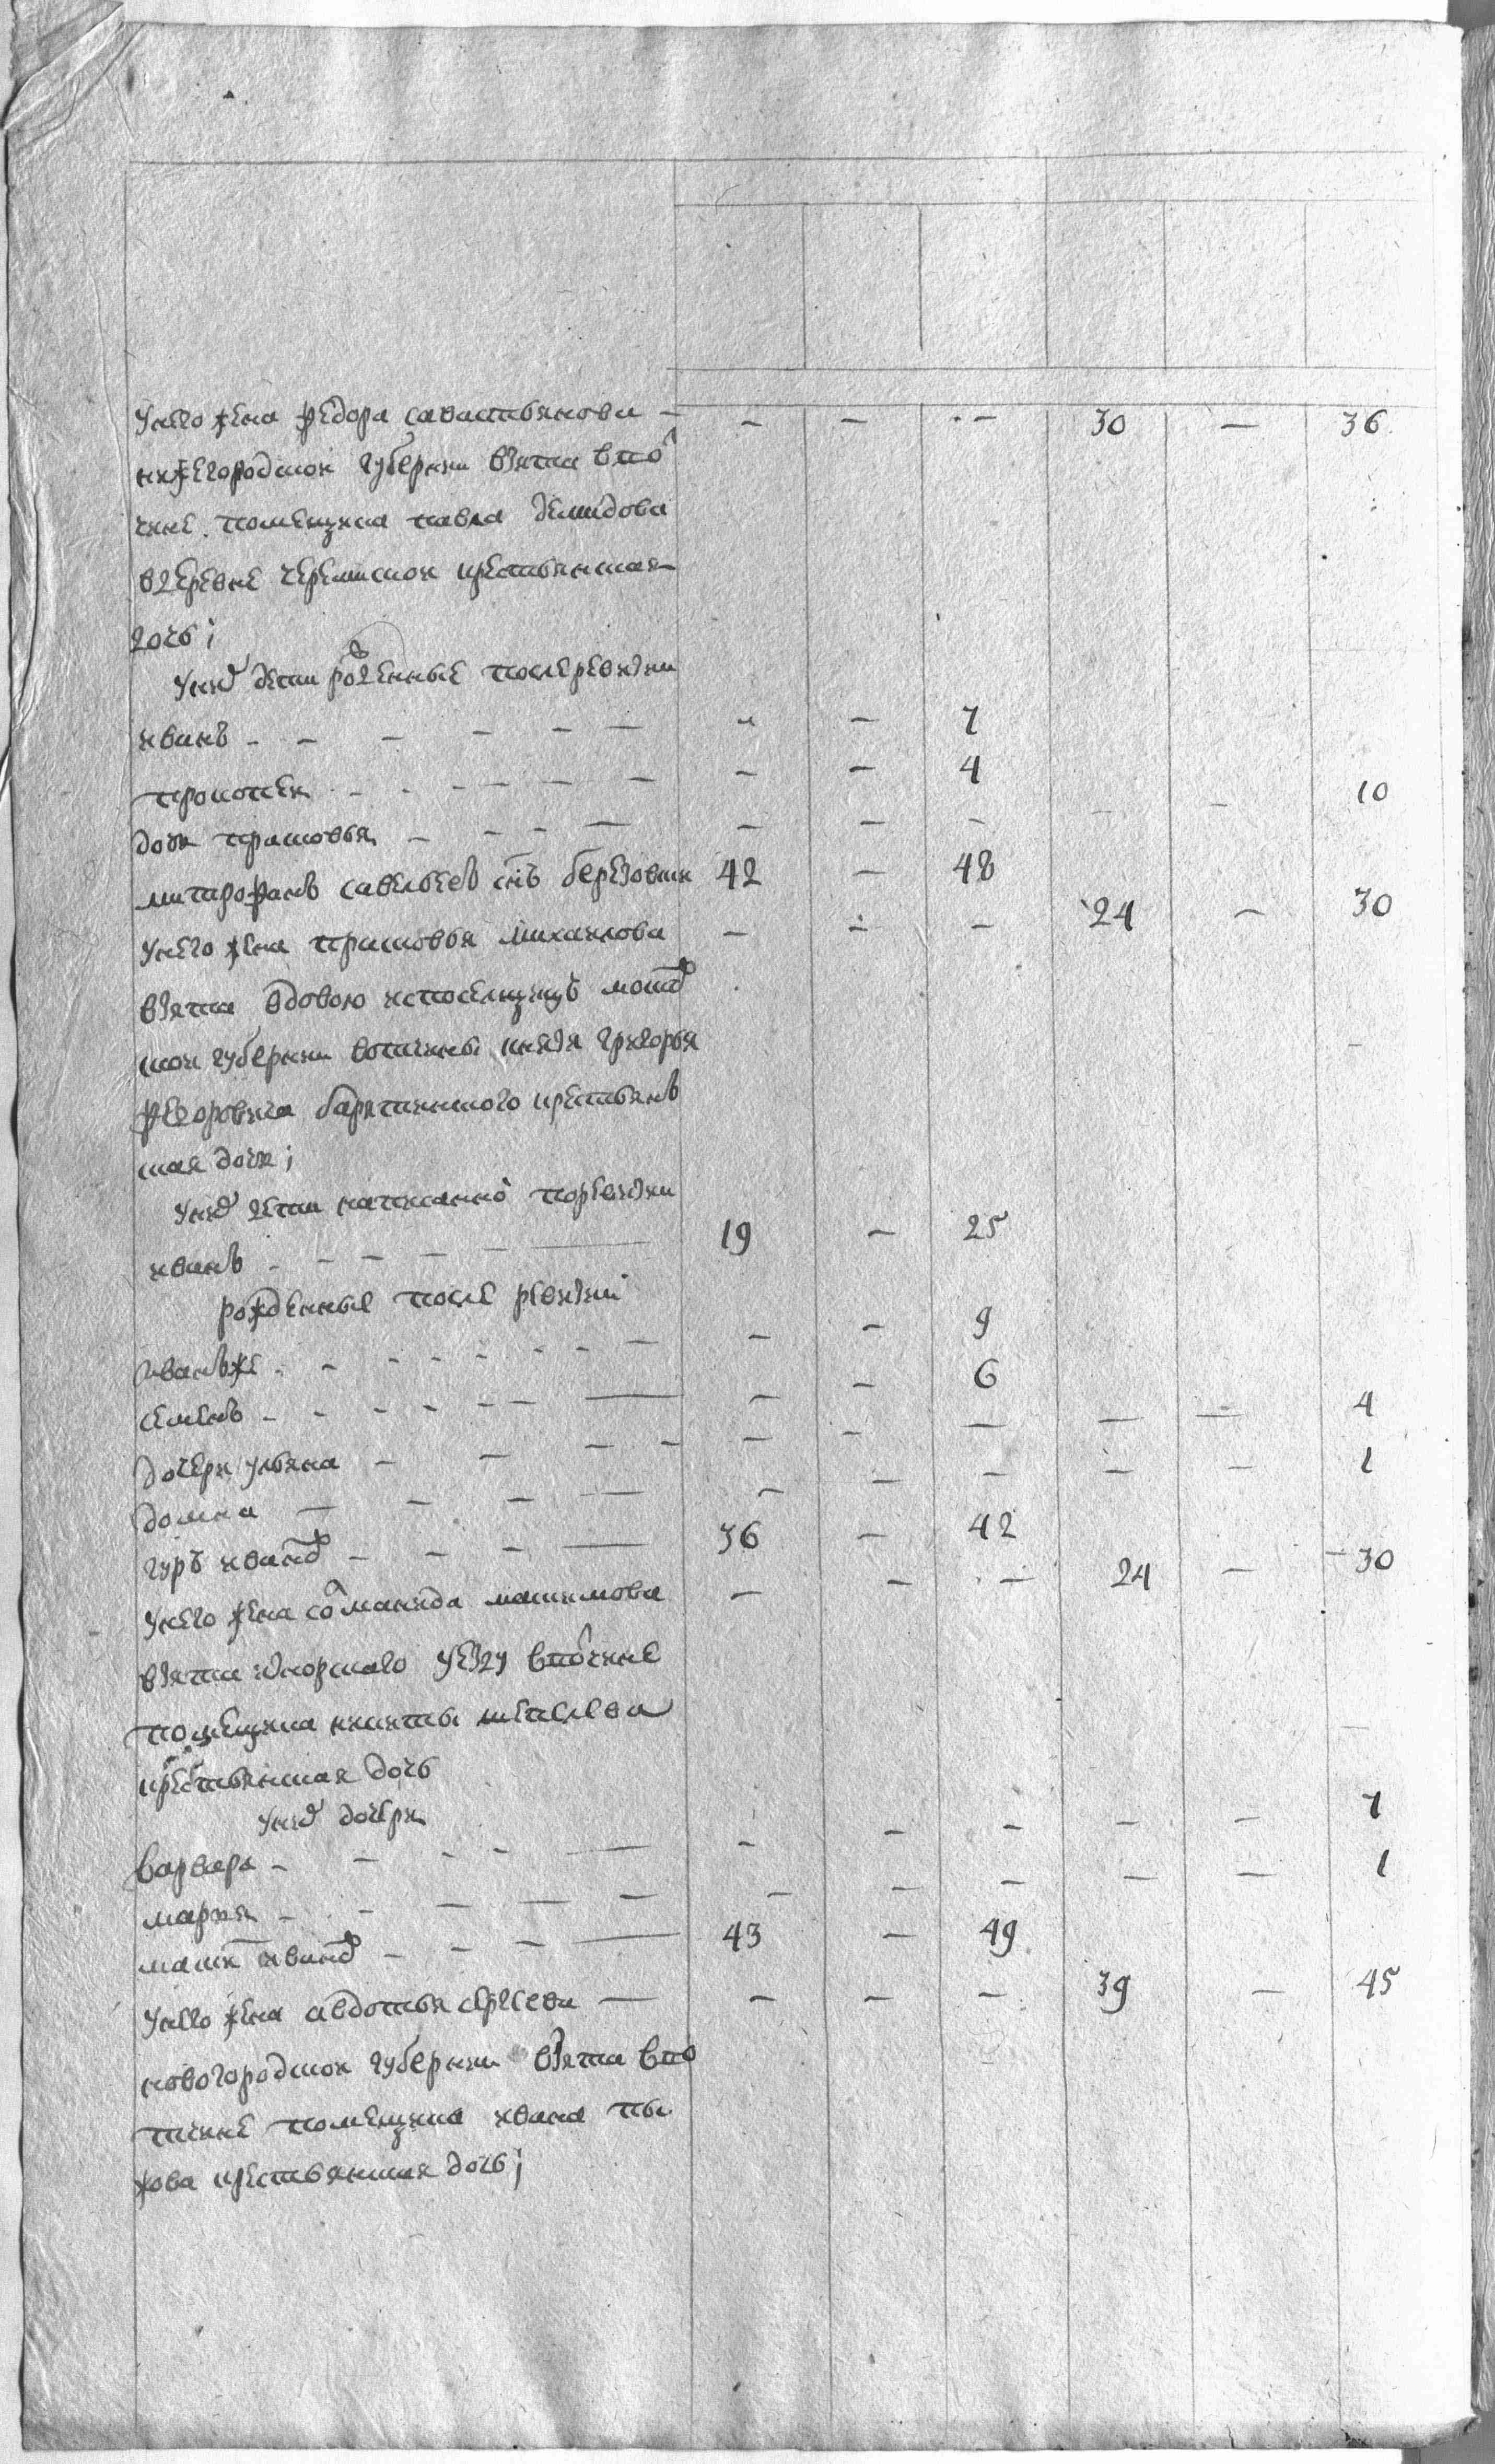 унего жена федора савастьянова - - - - 30 - 36
нижегородской губернии взята вотчине помещика павла демидова
вдеревне черемиской крестьянская
дочь;
уних дети рожденные послеревизии
иванъ - - - - - - - 7
прокопей - - - - - - - 4
дочь прасковья - - - - - - - - - 10
митрофанъ савельевъ снъ березовски 42 - 48
унего жена прасковья михаилова - - - 24 - 30
взята вдовою
ской губернии вотчины князя григорья
федоровича барятинского крестьянъ
ская дочь;
уних дети написанной поревизии
иванъ - - - - - 19 - 25
рожденные после ревизии
иванъже - - - - - - - - - 9
семенъ - - - - - - - - - 6
дочери ульяна - - - - - - - - - 4
домна - - - - - - - - - 1
гуръ иванов - - - - 36 - 42
унего жена соломанида максимова - - - 24 - 30
взята уезду вотчине
помещика никиты
крестьянская дочь
уних дочери
варвара - - - - - - - - - - 7
марья - - - - - - - - - - 1
иванов - - - - 43 - 49
унего жена авдотья сергеева - - - - 39 - 45
новогородской губернии взята вво
тчине помещика ивана пы
жова крестьянская дочь;